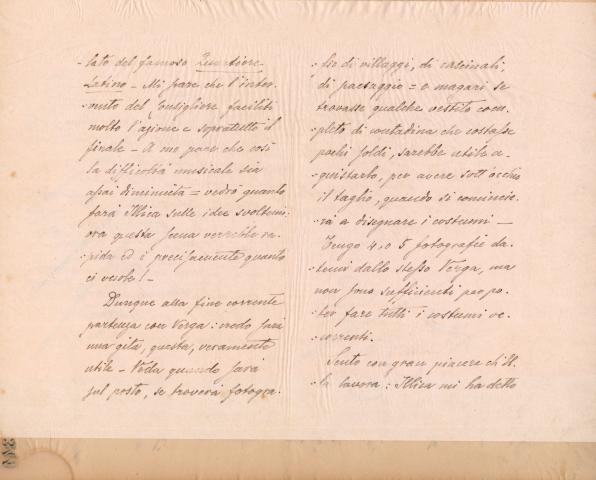 -lato del famoso Quartiere
Latino - Mi pare che l'inter-
-vento del Consigliere faciliti
molto l'azione e sopratutto il
finale - A me pare che così
la difficoltà musicale sia
assai diminuita = vedrò quanto
farà Illica sulle idee svoltemi:
ora questa scena verrebbe ra-
-pida ed è precisamente quanto
ci vuole! -
Dunque alla fine corrente
partenza con Verga: credo sarà
una gita, questa, veramente
utile - Veda quando sarà
sul posto, se troverà fotogra-
-fie di villaggi, di cascinali,
di paesaggio = e magari se
trovasse qualche vestito com-
-pleto di contadina che costasse
pochi soldi, sarebbe utile a-
-quistarlo, per avere sott'occhio
il taglio, quando si comincie-
-rà a disegnare i costumi -
Tengo 4 o 5 fotografie da-
-temi dallo stesso Verga, ma
non sono sufficienti per po-
-ter fare tutti i costumi oc-
-correnti.
Sento con gran piacere ch'El-
-la lavora: Illica mi ha detto